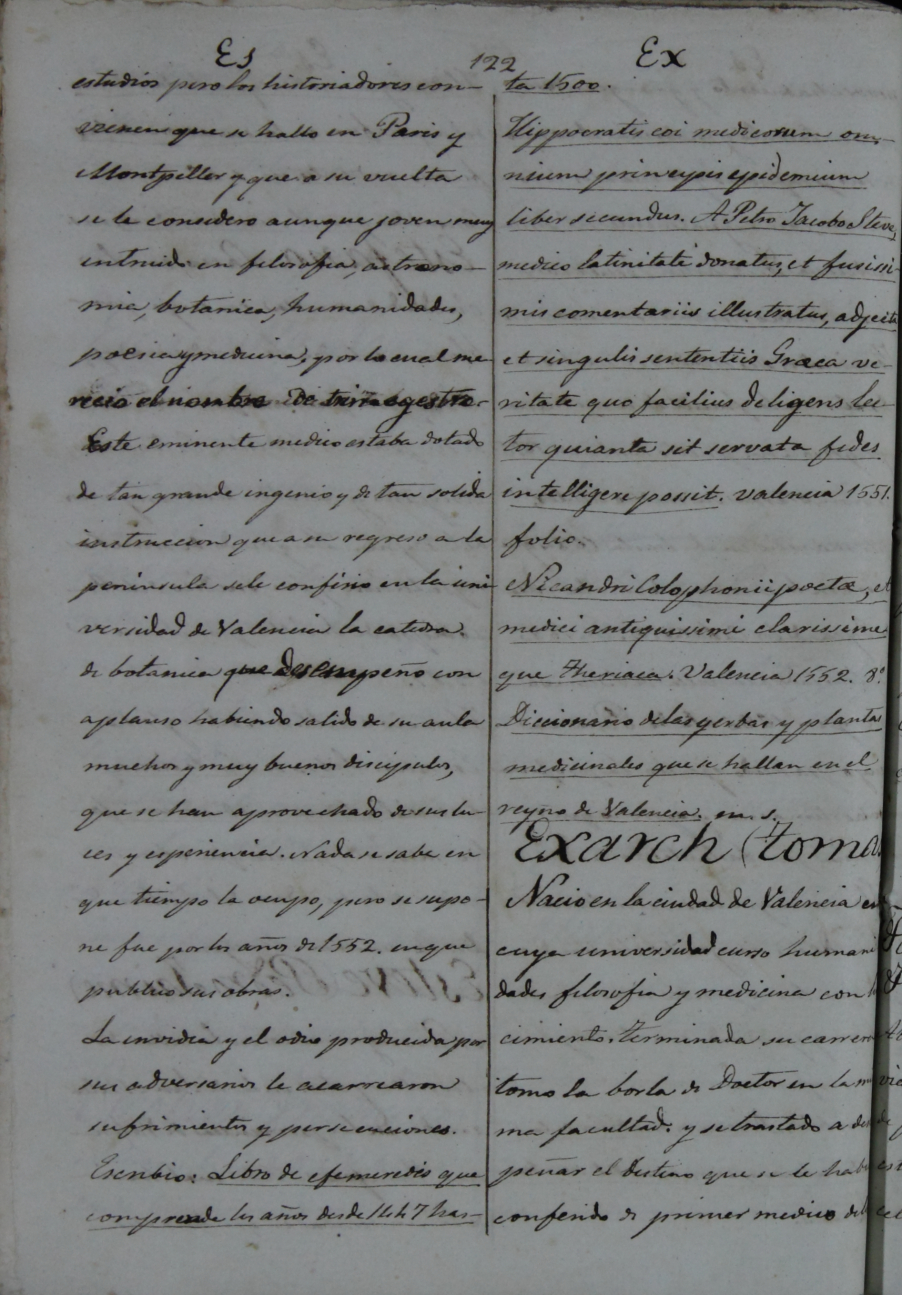 Es
122
Ex
estudios pero los historiadores con-
vienen que se hallo en Paris y
Montpeller y que a su vuelta
se le considero aunque joven muy
intruido en filosofia, astrono-
mia, botanica, humanidades,
poesia y medicina, por lo cual me
recio el nombre de
Este eminente medico estaba dotado
de tan grande ingenio y de tan solida
instruccion que a su regreso a la
peninsula se le confirio en la uni
versidad de Valencia la catedra
de botanica que desempeño con
aplauso habiendo salido de su aula
muchos y muy buenos discipulos,
que se han aprovechado de sus lu-
ces y esperiencia. Nada se sabe en
que tiempo la ocupo, pero se supo-
ne fue por los años de 1552. en que
publico sus obras.
La invidia y el odio producida por
sus adversarios le acarrearon
sufrimientos y persecuciones.
Escribio: Libro de efemeredis que
comprende los años desde 1447 has-
ta 1500.
Hippocratis coi medicorum om-
nium principis epidemium
liber secundus. A Petro Jacobo Steve,
medico latinitate donatus, et fusissi-
mis comentariis illustratus, adjecta
et singulis sententiis Græca ve-
ritate quo facilius deligens lec-
tor quianta sit servata fides
intelligere possit. Valencia 1551.
folio.
Nicandri Colophonii poetæ, et
medici antiquissimi clarissime
que theriaca. Valencia 1552. 8º.
Diccionario de las yerbas y planta
medicinales que se hallan en el
reyno de Valencia. m. s.
Exarch (toma
Nacio en la ciudad de Valencia en
cuya universidad curso humani
dades filosofia y medicina con
cimiento. Terminada su carrera
tomo la borla de Doctor en la
ma facultad. y se trastado a
peñar el destino que se le
conferido de primer medico